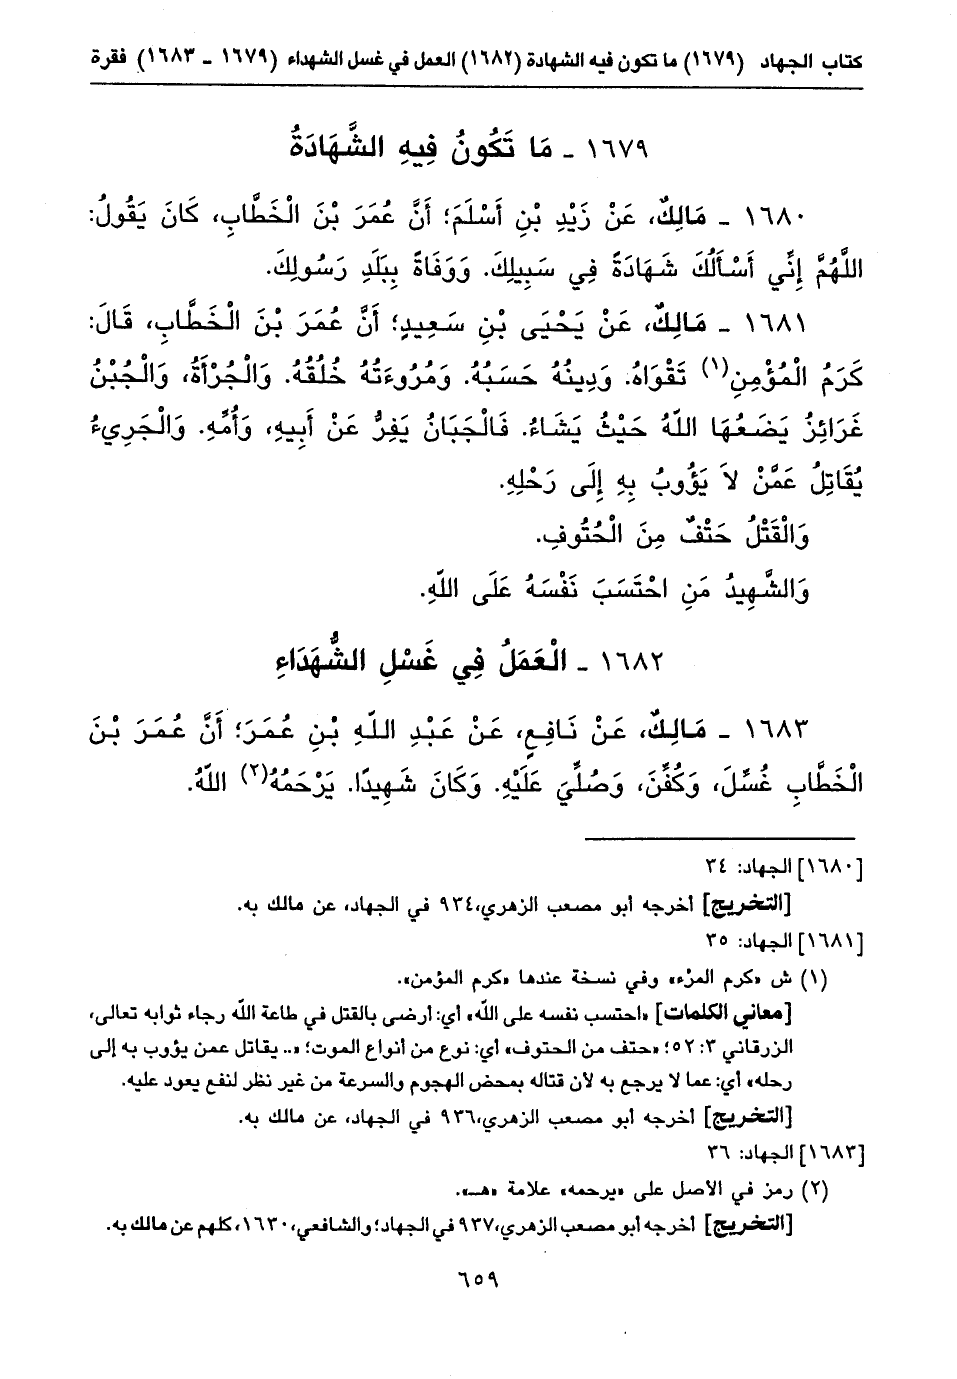 كتاب الجهاد (١٦٧٩) ما تكون فيه الشهادة (١٦٨٢) العمل في غسل الشهداء (١٦٧٩ ـ ١٦٨٣) فقرة
١٦٧٩ ـ مَا تَكُونُ فِيهِ الشَّهَادَةُ
١٦٨٠ ـ مَالِكٌ، عَنْ زَيْدِ بْنِ أَسْلَمَ؛ أَنَّ عُمَرَ بْنَ الْخَطَّابِ، كَانَ يَقُولُ:
اللَّهُمَّ إِنِّي أَسْأَلُكَ شَهَادَةً فِي سَبِيلِكَ. وَوَفَاةً بِبَلَدِ رَسُولِكَ.
١٦٨١ ـ مَالِكٌ، عَنْ يَحْيَى بْنِ سَعِيدٍ؛ أَنَّ عُمَرَ بْنَ الْخَطَّابِ، قَالَ:
كَرَمُ الْمُؤْمِنِ(١) تَقْوَاهُ. وَدِينُهُ حَسَبُهُ. وَمُرُوءَتُهُ خُلُقُهُ. وَالْجُرْأَةُ، وَالْجُبْنُ
غَرَائِزُ يَضَعُهَا اللّهُ حَيْثُ يَشَاءُ. فَالْجَبَانُ يَفِرُّ عَنْ أَبِيهِ، وَأُمِّهِ. وَالْجَرِيءُ
يُقَاتِلُ عَمَّنْ لاَ يَؤُوبُ بِهِ إِلَى رَحْلِهِ.
وَالْقَتْلُ حَتْفٌ مِنَ الْحُتُوفِ.
وَالشَّهِيدُ مَنِ احْتَسَبَ نَفْسَهُ عَلَى اللّهِ.
١٦٨٢ ـ الْعَمَلُ فِي غَسْلِ الشُّهَدَاءِ
١٦٨٣ ـ مَالِكٌ، عَنْ نَافِعٍ، عَنْ عَبْدِ اللّهِ بْنِ عُمَرَ؛ أَنَّ عُمَرَ بْنَ
الْخَطَّابِ غُسِّلَ، وَكُفِّنَ، وَصُلِّيَ عَلَيْهِ. وَكَانَ شَهِيدًا. يَرْحَمُهُ(٢) اللّهُ.
[١٦٨٠] الجهاد: ٣٤
[التخريج] أخرجه أبو مصعب الزهري، ٩٣٤ في الجهاد، عن مالك به.
[١٦٨١] الجهاد: ٣٥
(١) ش «كرم المرْء» وفي نسخة عندها «كرم المؤمن».
[معاني الكلمات] «احتسب نفسه على الله» أي: أرضى بالقتل في طاعة الله رجاء ثوابه تعالى،
الزرقاني ٣: ٥٢؛ «حتف من الحتوف» أي: نوع من أنواع الموت؛ «.. يقاتل عمن يؤوب به إلى
رحله» أي: عما لا يرجع به لأن قتاله بمحض الهجوم والسرعة من غير نظر لنفع يعود عليه.
[التخريج] أخرجه أبو مصعب الزهري، ٩٣٦ في الجهاد، عن مالك به.
[١٦٨٣] الجهاد: ٣٦
(٢) رمز في الأصل على «يرحمه» علامة «هـ».
[التخريج] أخرجه أبو مصعب الزهري، ٩٣٧ في الجهاد؛ والشافعي، ١٦٣٠، كلهم عن مالك به.
٦٥٩